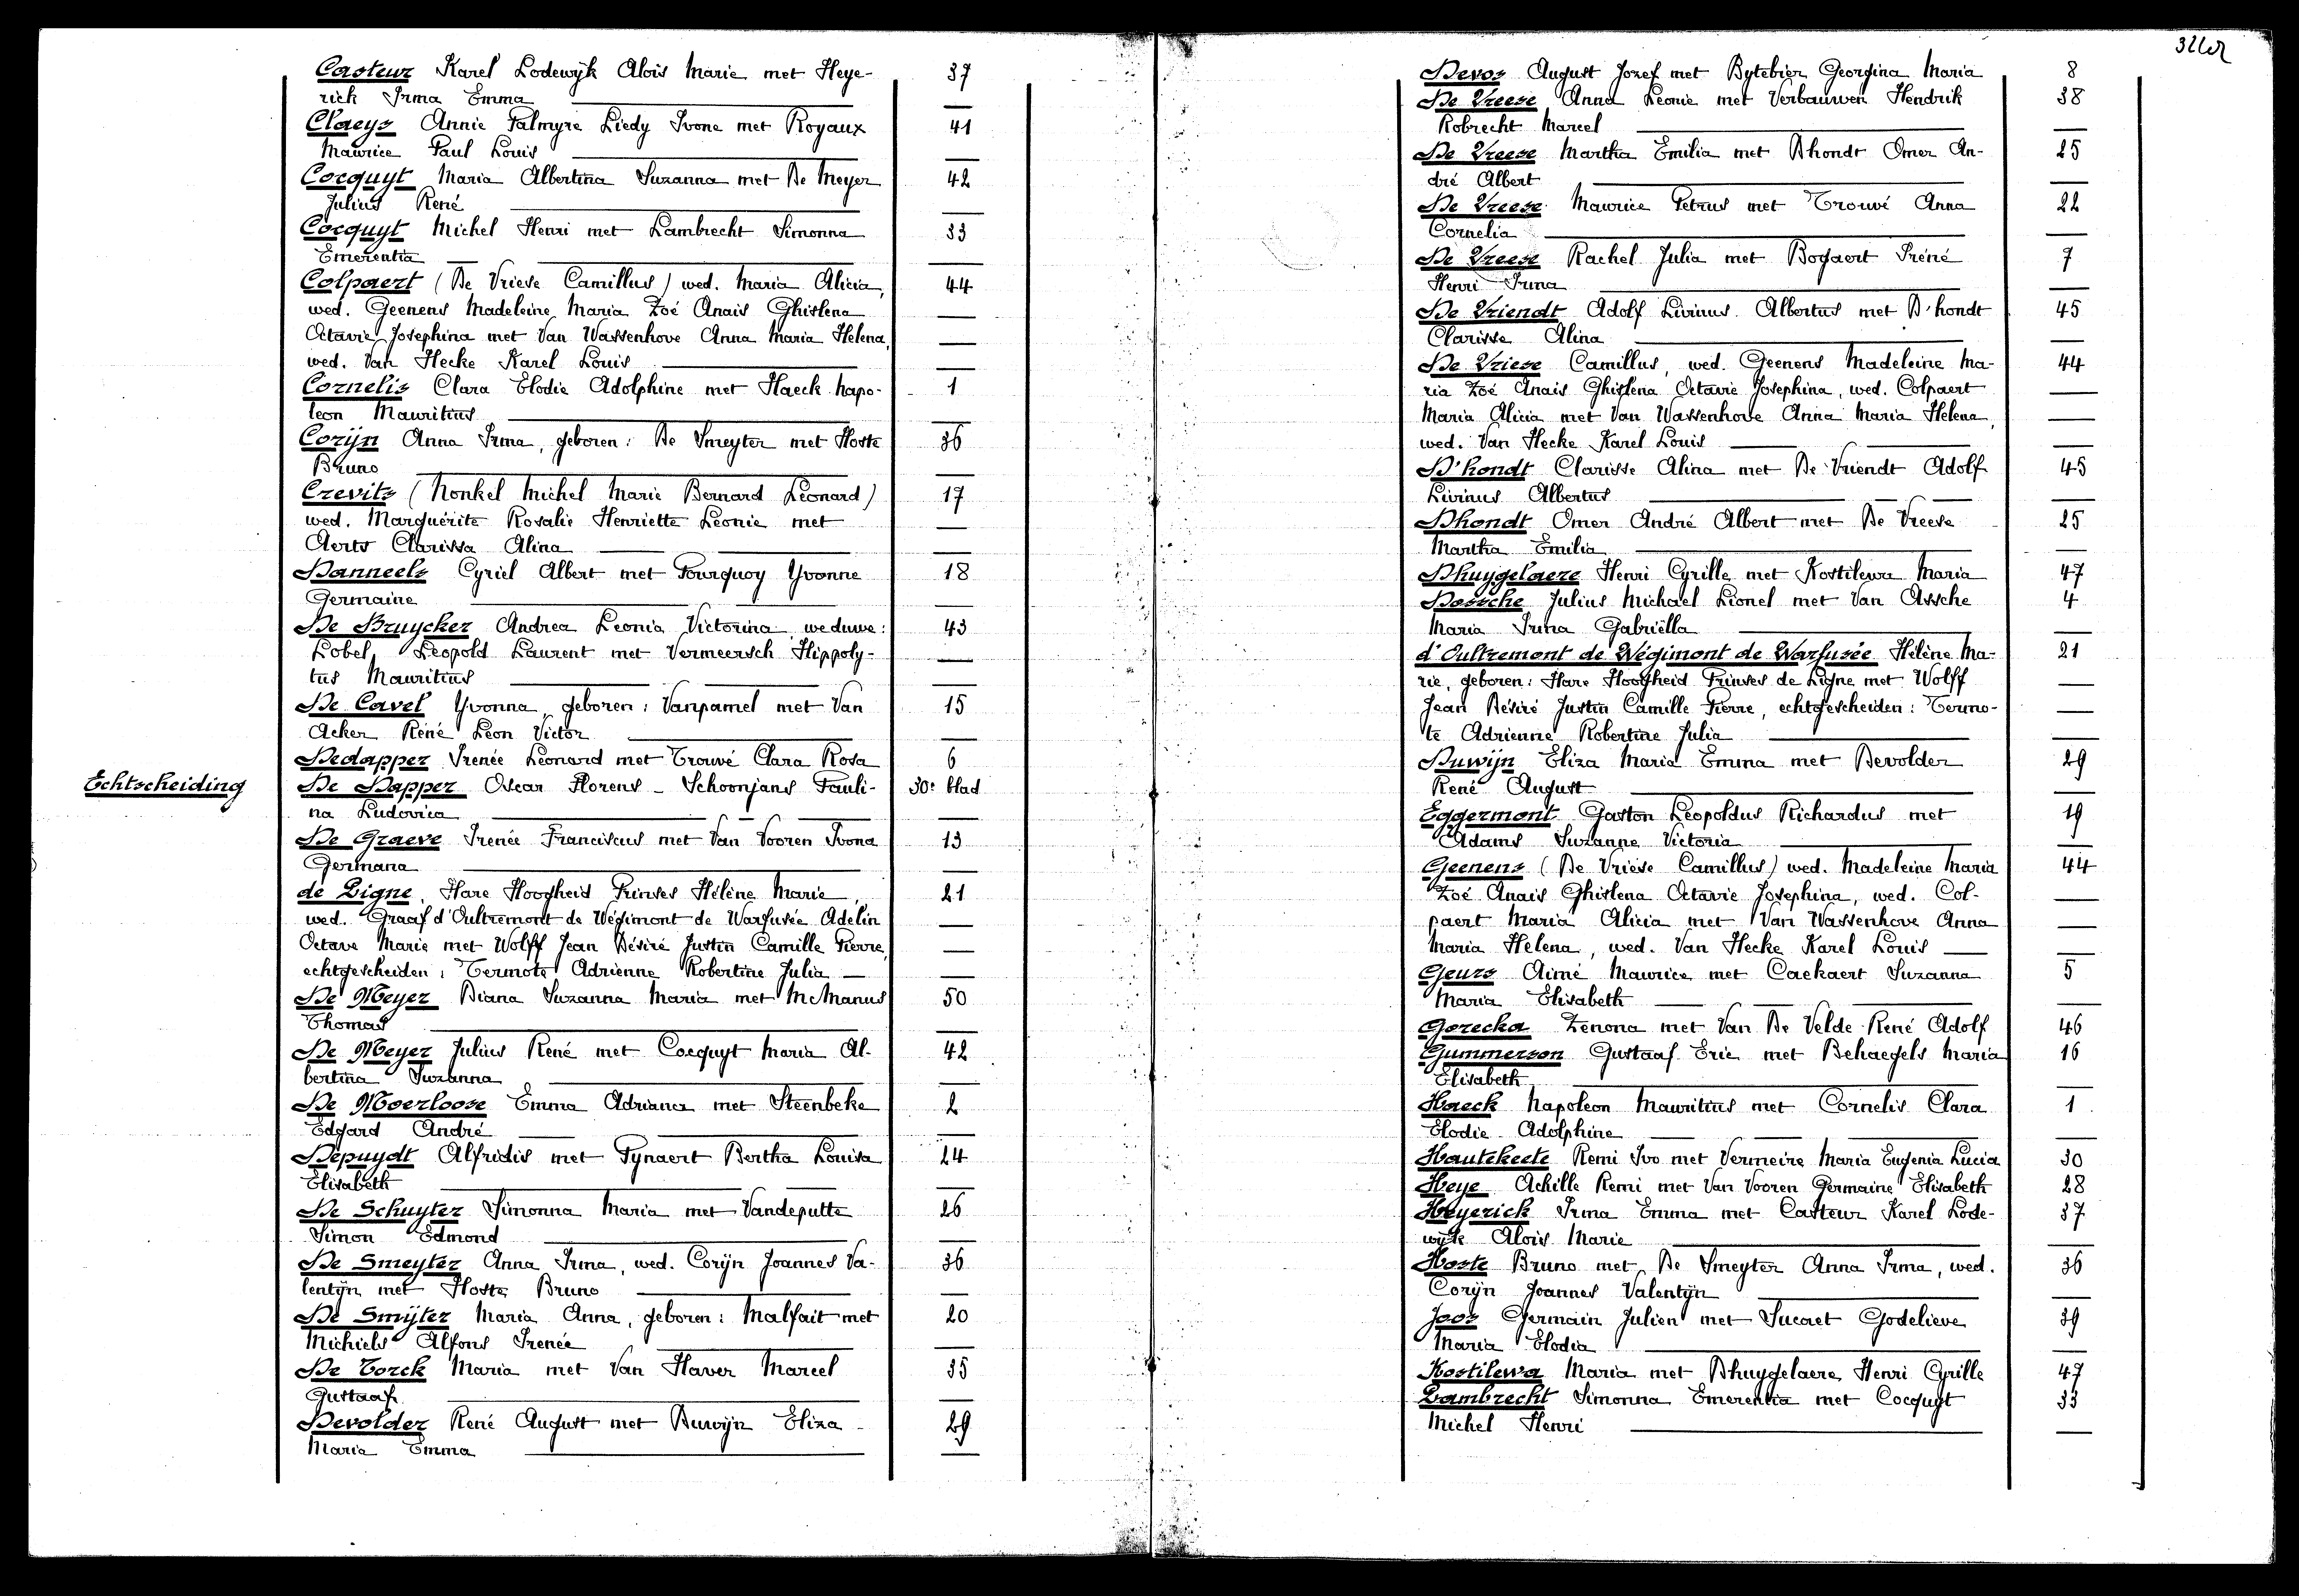 Casteur Karel Lodewijk Aloïs Marie met Heye- 37
rick Irma Emma
Claeys Annie Palmyre Liedy Ivone met Royaux 41
Maurice Paul Louis
Cocquyt Maria Albertina Suzanna met De Meyer 42
Julius René
Cocquyt Michel Henri met Lambrecht Simonna 33
Emerentia
Colpaert (De Vriese Camillus) wed. Maria Alicia, 44
wed. Geenens Madeleine Maria Zoé Anaïs Ghislena
Octavie Josephina met Van Wassenhove Anna Maria Helena,
wed. Van Hecke Karel Louis
Cornelis Clara Elodie Adolphine met Haeck Napo- 1
leon Mauritius
Corijn Anna Irma, geboren: De Smeyter met Hoste 36
Bruno
Crevits (Nonkel Michel Marie Bernard Léonard) 17
wed. Marguérite Rosalie Henriette Leonie met
Aerts Clarissa Alina
Danneels Cyriel Albert met Fourquoy Yvonne 18
Germaine
De Bruycker Andrea Leonia Victorina weduwe: 43
Lobel, Leopold Laurent met Vermeersch Hippoly-
tus Mauritius
De Cavel Yvonna, geboren: Vanpamel met Van 15
Acker René Leon Victor
Dedapper Irenée Léonard met Trouvé Clara Rosa 6
Echtscheiding De Dapper Oscar Florens - Schoonjans Pauli- 30e blad
na Ludovica
De Graeve Irenée Franciscus met Van Vooren Ivona 13
Germana
de Ligne, Hare Hoogheid Prinses Hélène Marie, 21
wed. Graaf d'Oultremont de Wégimont de Warfusée Adelin
Octave Marie met Wolff Jean Désiré Justin Camille Pierre,
echtgescheiden: Termote Adrienne Robertine Julia
De Meyer Diana Suzanna Maria met McManus 50
Thomas
De Meyer Julius René met Cocquyt Maria Al- 42
bertina Suzanna
De Moerloose Emma Adriana met Steenbeke 2
Edgard André
Depuydt Alfridis met Pynaert Bertha Louisa 24
Elisabeth
De Schuyter Simonna Maria met Vandeputte 26
Simon Edmond
De Smeyter Anna Irma, wed. Corijn Joannes Va- 36
lentijn met Hoste Bruno
De Smijter Maria Anna, geboren: Malfait met 20
Michiels Alfons Irenée
De Torck Maria met Van Haver Marcel 35
Gustaaf
Devolder René August met Duwijn Eliza 29
Maria Emma
Devos August Jozef met Bytebier Georgina Maria 8
De Vreese Anna Leonie met Verbauwen Hendrik 38
Robrecht Marcel
De Vreese Martha Emilia met Dhondt Omer An- 25
dré Albert
De Vreese Maurice Petrus met Trouvé Anna 22
Cornelia
De Vreese Rachel Julia met Bogaert Iréné 7
Henri Irma
De Vriendt Adolf Livinus Albertus met D'hondt 45
Clarisse Alina
De Vriese Camillus, wed. Geenens Madeleine Ma- 44
ria Zoé Anaïs Ghislena Octavie Josephina, wed. Colpaert
Maria Alicia met Van Wassenhove Anna Maria Helena,
wed. Van Hecke Karel Louis
D'hondt Clarisse Alina met De Vriendt Adolf 45
Livinus Albertus
Dhondt Omer André Albert met De Vreese 25
Martha Emilia
Dhuygelaere Henri Cyrille met Kostilewa Maria 47
Dossche Julius Michaël Lionel met Van Assche 4
Maria Irma Gabriëlla
d'Oultremont de Wégimont de Warfusée Hélène Ma- 21
rie, geboren: Hare Hoogheid Prinses de Ligne met Wolff
Jean Désiré Justin Camille Pierre, echtgescheiden: Termo-
te Adrienne Robertine Julia
Duwijn Eliza Maria Emma met Devolder 29
René August
Eggermont Gaston Leopoldus Richardus met 19
Adams Suzanne Victoria
Geenens (De Vriese Camillus) wed. Madeleine Maria 44
Zoé Anaïs Ghislena Octavie Josephina, wed. Col-
paert Maria Alicia met Van Wassenhove Anna
Maria Helena, wed. Van Hecke Karel Louis
Geurs Aimé Maurice met Caekaert Suzanna 5
Maria Elisabeth
Gorecka Zenona met Van De Velde René Adolf 46
Gummerson Gustaaf Eric met Behaegels Maria 16
Elisabeth
Haeck Napoleon Mauritius met Cornelis Clara 1
Elodie Adolphine
Hautekeete Remi Ivo met Vermeire Maria Eugenia Lucia 30
Heye Achille Remi met Van Vooren Germaine Elisabeth 28
Heyerick Irma Emma met Casteur Karel Lode- 37
wijk Aloïs Marie
Hoste Bruno met De Smeyter Anna Irma, wed. 36
Corijn Joannes Valentijn
Joos Germain Julien met Sucaet Godelieve 39
Maria Elodia
Kostilewa Maria met Dhuygelaere Henri Cyrille 47
Lambrecht Simonna Emerentia met Cocquyt 33
Michel Henri